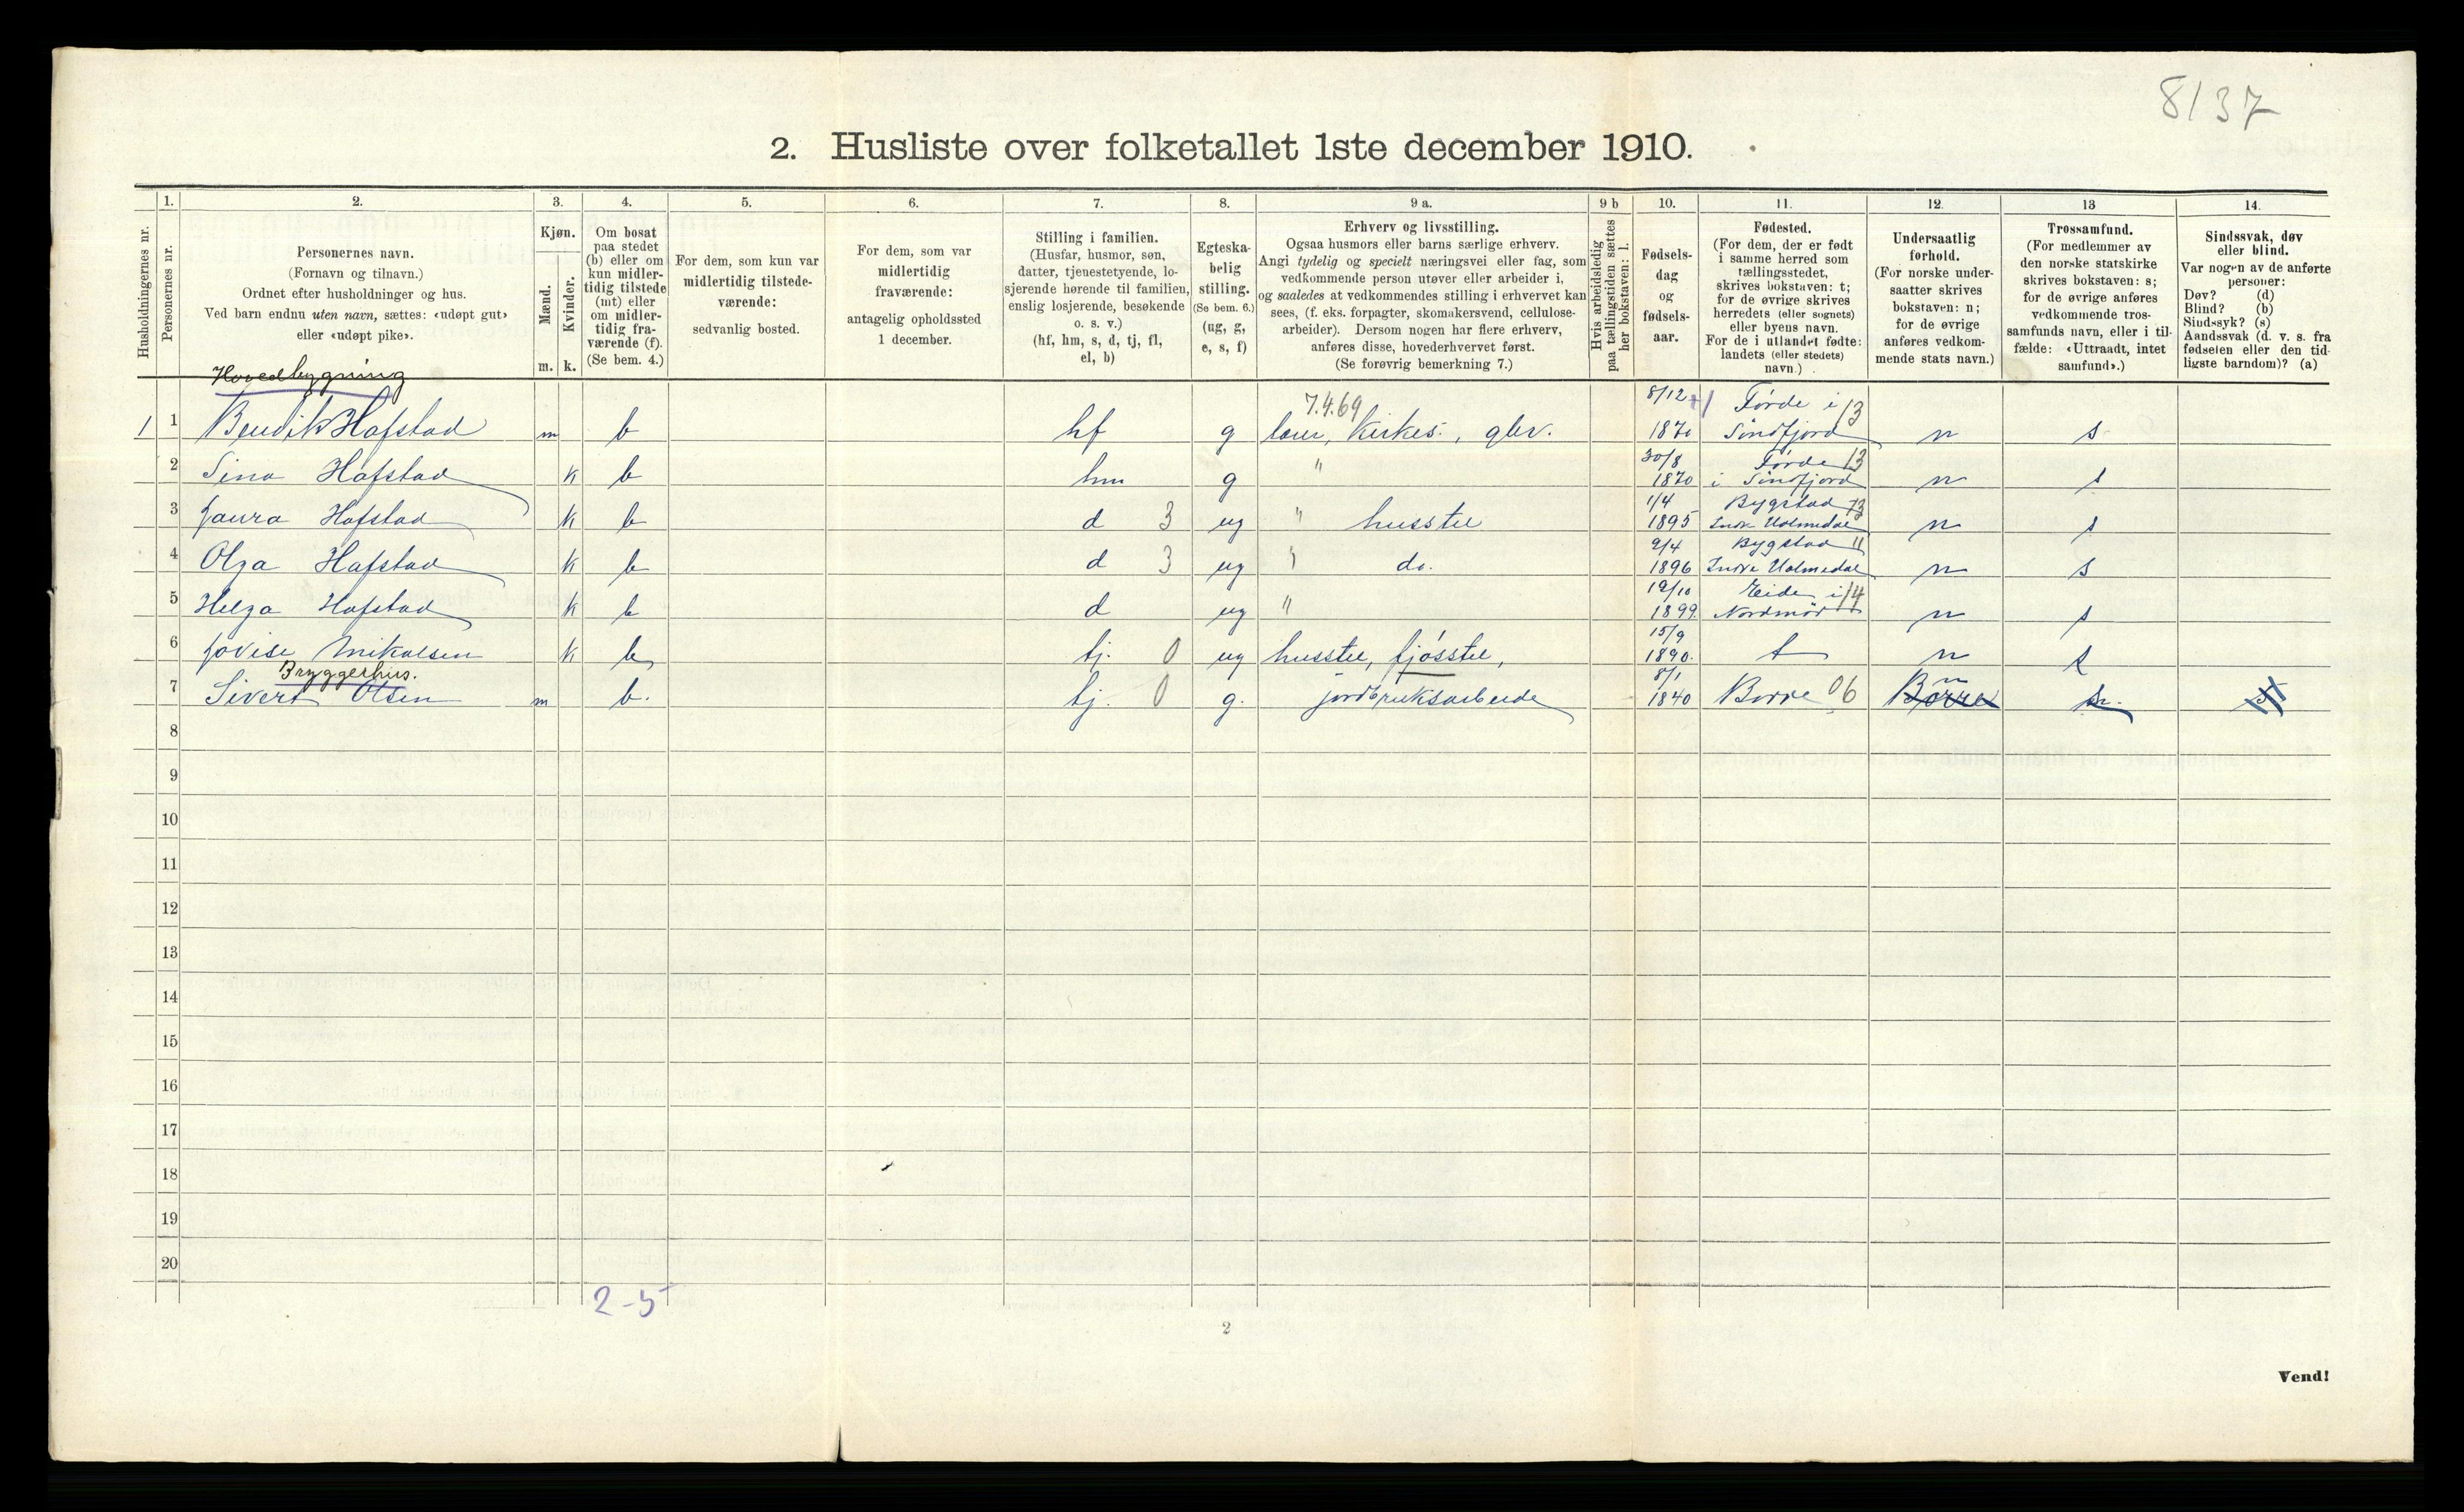 8137
2. Husliste over folketallet 1ste december 1910.
Husholdningernes nr.
1.
Personernes nr.
2.
Personernes navn.
(Fornavn og tilnavn.)
Ordnet efter husholdninger og hus.
Ved barn endnu uten navn, sættes: «udøpt gut»
eller «udøpt pike».
3.
Kjøn.
Mænd.
Kvinder.
m. k.
4.
Om bosat
paa stedet
(b) eller om
kun midler-
tidig tilstede
(mt) eller
om midler-
tidig fra-
værende (f).
(Se bem. 4.)
5.
For dem, som kun var
midlertidig tilstede-
værende:
sedvanlig bosted.
6.
For dem, som var
midlertidig
fraværende:
antagelig opholdssted
1 december.
7.
Stilling i familien.
(Husfar, husmor, søn,
datter, tjenestetyende, lo-
sjerende hørende til familien,
enslig losjerende, besøkende
o. s. v.)
(hf, hm, s, d, tj, fl,
el, b)
8.
Egteska-
belig
stilling.
(Se bem. 6.)
(ug, g,
e, s, f)
9 a.
Erhverv og livsstilling.
Ogsaa husmors eller barns særlige erhverv.
Angi tydelig og specielt næringsvei eller fag, som
vedkommende person utøver eller arbeider i,
og saaledes at vedkommendes stilling i erhvervet kan
sees, (f. eks. forpagter, skomakersvend, cellulose-
arbeider). Dersom nogen har flere erhverv,
anføres disse, hovederhvervet først.
(Se forøvrig bemerkning 7.)
9 b
Hvis arbeidsledig
paa tællingstiden sættes
her bokstaven: l.
10.
Fødsels-
dag
og
fødsels-
aar.
11.
Fødested.
(For dem, der er født
i samme herred som
tællingsstedet,
skrives bokstaven: t;
for de øvrige skrives
herredets (eller sognets)
eller byens navn.
For de i utlandet fødte:
landets (eller stedets)
navn.)
12.
Undersaatlig
forhold.
(For norske under-
saatter skrives
bokstaven: n;
for de øvrige
anføres vedkom-
mende stats navn.)
13
Trossamfund.
(For medlemmer av
den norske statskirke
skrives bokstaven: s;
for de øvrige anføres
vedkommende tros-
samfunds navn, eller i til-
fælde: «Uttraadt, intet
samfund».)
14.
Sindssvak, døv
eller blind.
Var nogen av de anførte
personer:
Døv? (d)
Blind? (b)
Sindssyk? (s)
Aandssvak (d. v. s. fra
fødselen eller den tid-
ligste barndom)? (a)
Hovedbygning
7.4.69 8/12 Førde i 13
1 1 Bendik Hofstad m b hf g lærer, Kirkes., gbr. 1870 Søndfjord n s
30/8 Førde 13
2 Sina Hofstad k b hm g " 1870 i Søndfjord n s
1/4 Bygstad 13
3 Laura Hofstad k b d 3 ug " husstel 1895 Indre Holmedal n s
9/4 Bygstad "
4 Olga Hofstad k b d 3 ug " do. 1896 Indre Holmedal n s
19/10 Eide i 14
5 Helga Hofstad k b d ug " 1899 Nordmør n s
15/9
6 Lovise Mikalsen k b tj. 0 ug husstel, fjøsstel, 1890. t n s
Bryggerhus. 8/1 n
7 Sivert Olsen m b. tj. 0 g. jordbruksarbeide 1840 Borre 06 Borre
8
9
10
11
12
13
14
15
16
17
18
19
20
2-5
2
Vend!